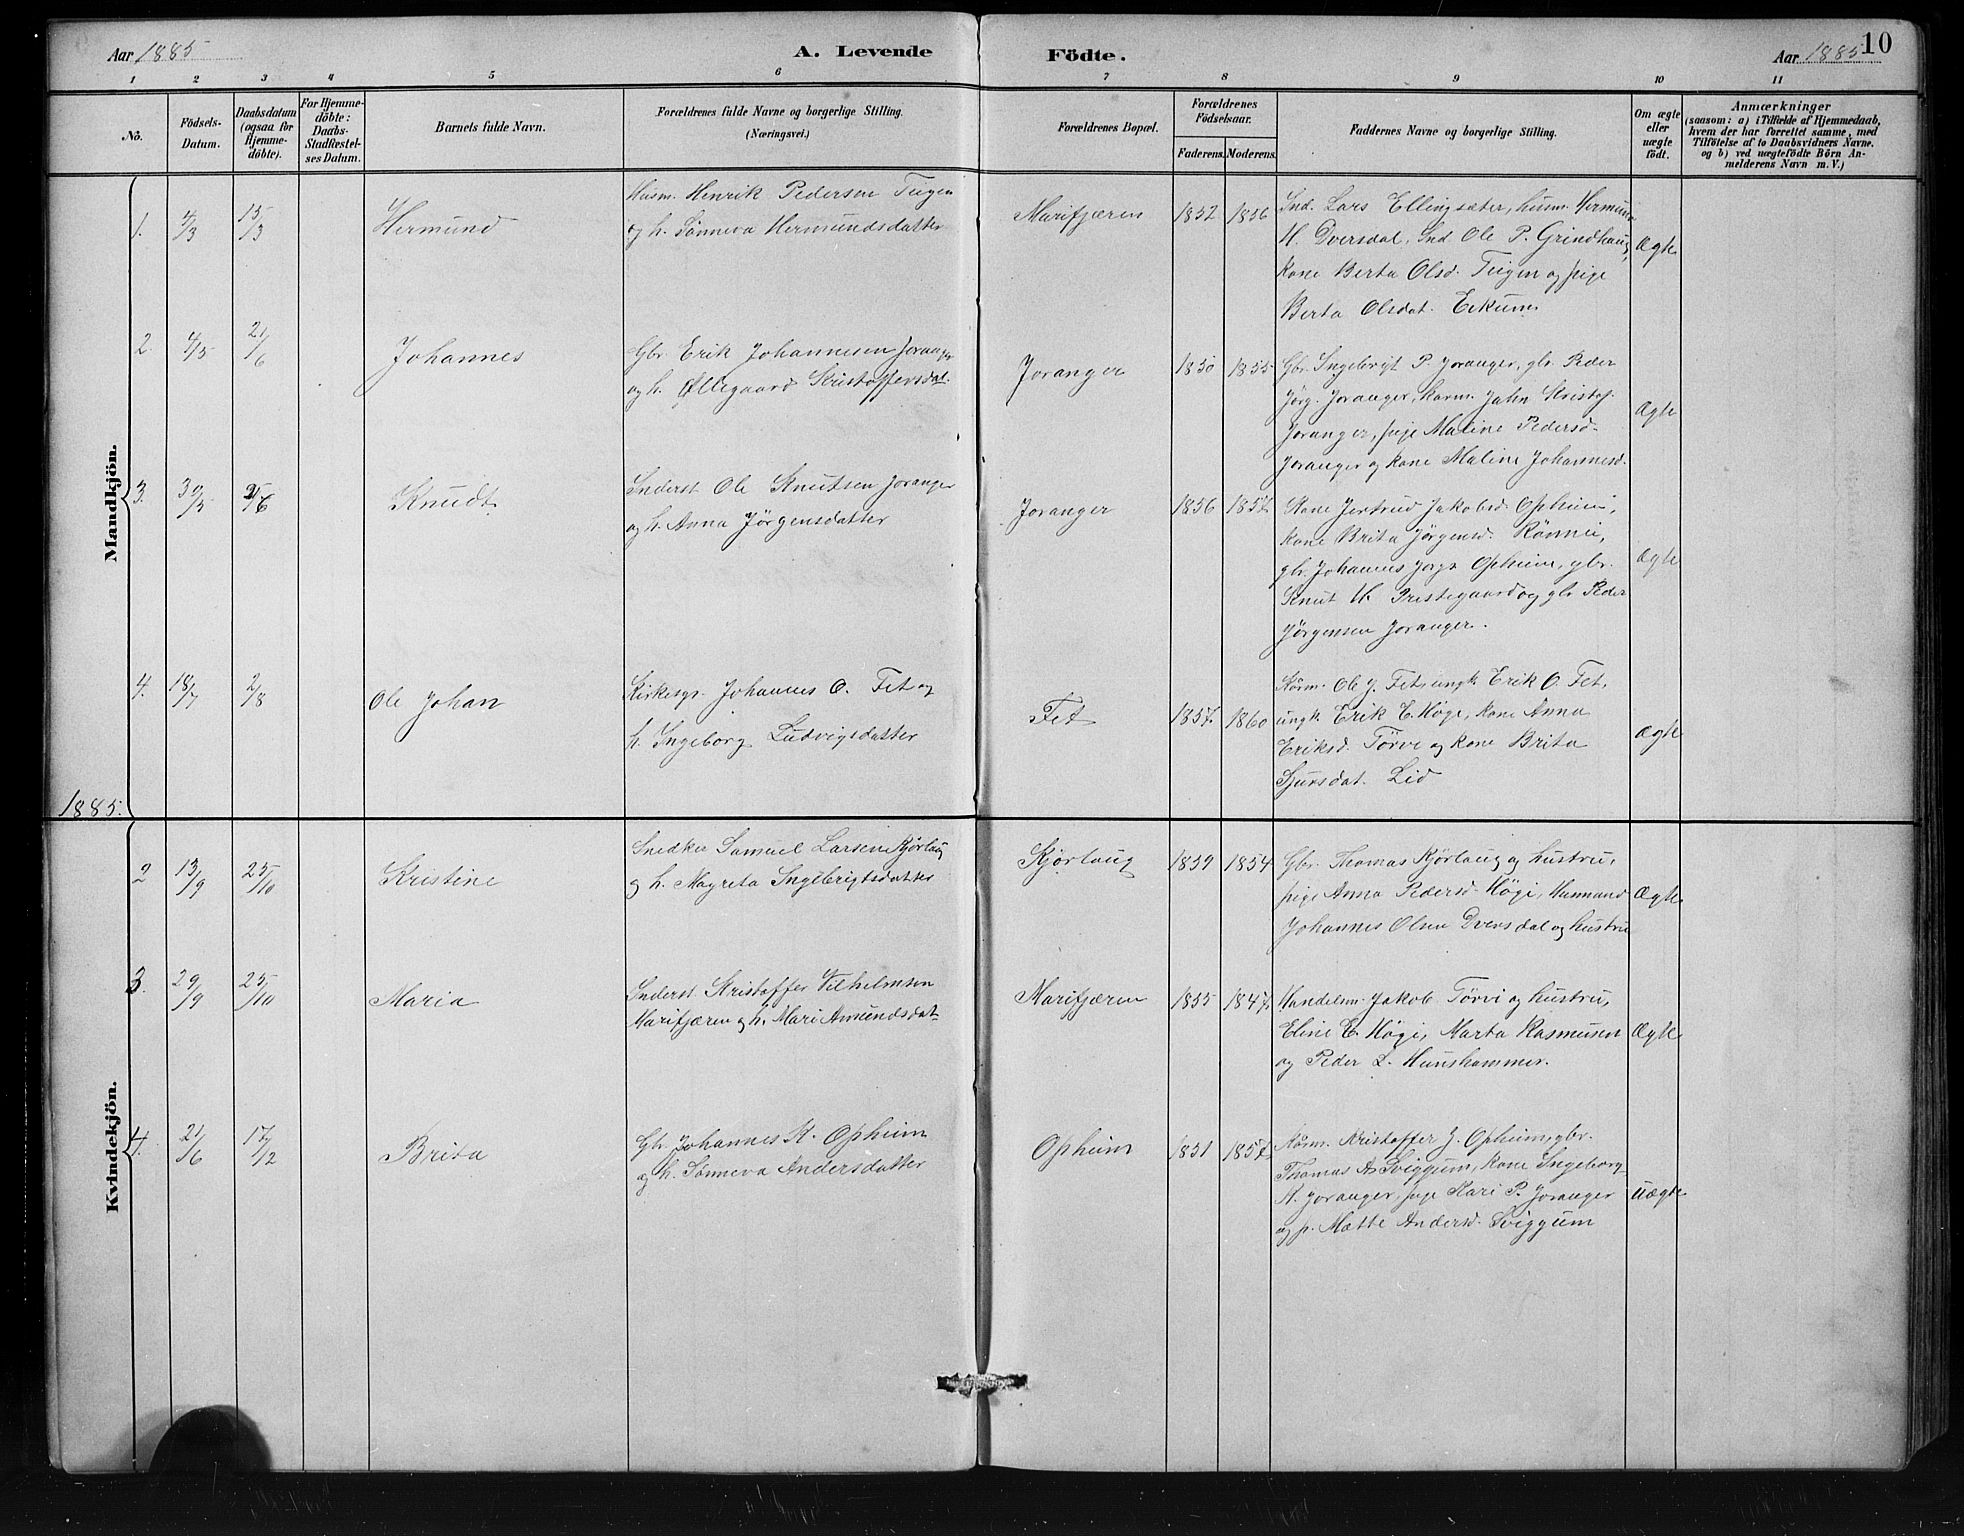 Aar 1885 A. Levende Födte. Aar 1885 10
1 2 3 4 5 6 7 8 9 10 11
No.
Födsels-
Datum.
Daabsdatum
(ogsaa for
Hjemme-
döbte).
For Hjemme-
döbte:
Daabs-
Stadfæstel-
ses Datum.
Barnets fulde Navn.
Forældrenes fulde Navne og borgerlige Stilling.
(Næringsvei.)
Forældrenes Bopæl.
Forældrenes
Födselsaar.
Faderens. Moderens.
Faddernes Navne og borgerlige Stilling.
Om ægte
eller
uægte
födt.
Anmærkninger
(saasom: a) i Tilfælde af Hjemmedaab,
hvem der har forrettet samme, med
Tilföielse af to Daabsvidners Navne.
og b) ved uægtefödte Börn An-
melderens Navn m. V.)
Mandkjön.
1. 4/3 15/3 Hermund
Husm. Henrik Pedersen Tugen
og h. Sønneva Hermundsdatter
Marifjæren 1852 1856
Ind. Lars Ellingsæter, husm. Hermund
H. Dversdal, Ind Ole P. Grindhaug,
Kone Berta Olsd. Tugen og pige
Berta Olsdat. Eikum
Ægte
2. 4/5 21/6 Johannes
Gbr Erik Johannesen Joranger
og h. Øllegaard Kristoffersdat.
Joranger 1850 1855
Gbr. Ingebrigt P. Joranger, gbr. Peder
Jørg. Joranger, Jahn Kristof.
Joranger, pige Maline Pedersd.
Joranger og kone Maline Johannesd.
Ægte
3. 30/5 21/6 Knudt
Inderst Ole Knutsen Joranger
og h. Anna Jørgensdatter
Joranger 1856 1857
Kone Jertrud Jakobsd. Opheim,
kone Brita Jørgensd. Rønnei,
gbr. Johannes Jørgs Opheim, gbr.
Knut H. Prestegaard og gbr Peder
Jørgensen Joranger.
Ægte
4. 18/7 2/8 Ole Johan
Kirkesgr. Johannes O. Fet og
h. Ingeborg Ludvigsdatter
Fet 1857 1860
Kårm. Ole J. Fet, ungk. Erik O. Fet,
ungk. Erik E. Høgi, kone Anna
Eriksd. Tørvi og kone Brita
Sjursdat. Lid
Ægte
1885.
Kvindekjön.
2 13/9 25/10 Kristine
Snedker Samuel Larsen Kjørlaug
og h. Magreta Ingebrigtsdatter
Kjørlaug 1859 1854
Gbr. Thomas Kjørlaug og hustru,
pige Anna Pedersd. Høgi,
Johannes Olsen Dversdal og hustru
Ægte
3. 29/9 25/10 Maria
Inderst Kristoffer Vilhelmsen
Marifjæren og h. Mari Amundsdat
Marifjæren 1855 1847
Handelsm. Jakob Tørvi og hustru,
Eline E. Høgi, Marta Rasmusen
og Peder L. Hunshammer.
Ægte
4. 21/6 17/12 Brita
Gbr. Johannes K. Opheim
og h. Sønneva Andersdatter
Opheim 1851 1857
Kårm. Kristoffer J. Opheim, gbr.
Thomas A. Sviggum, kone Ingeborg
K. Joranger, pige Kari P. Joranger
og p. Mætte Andersd. Sviggum
uægte